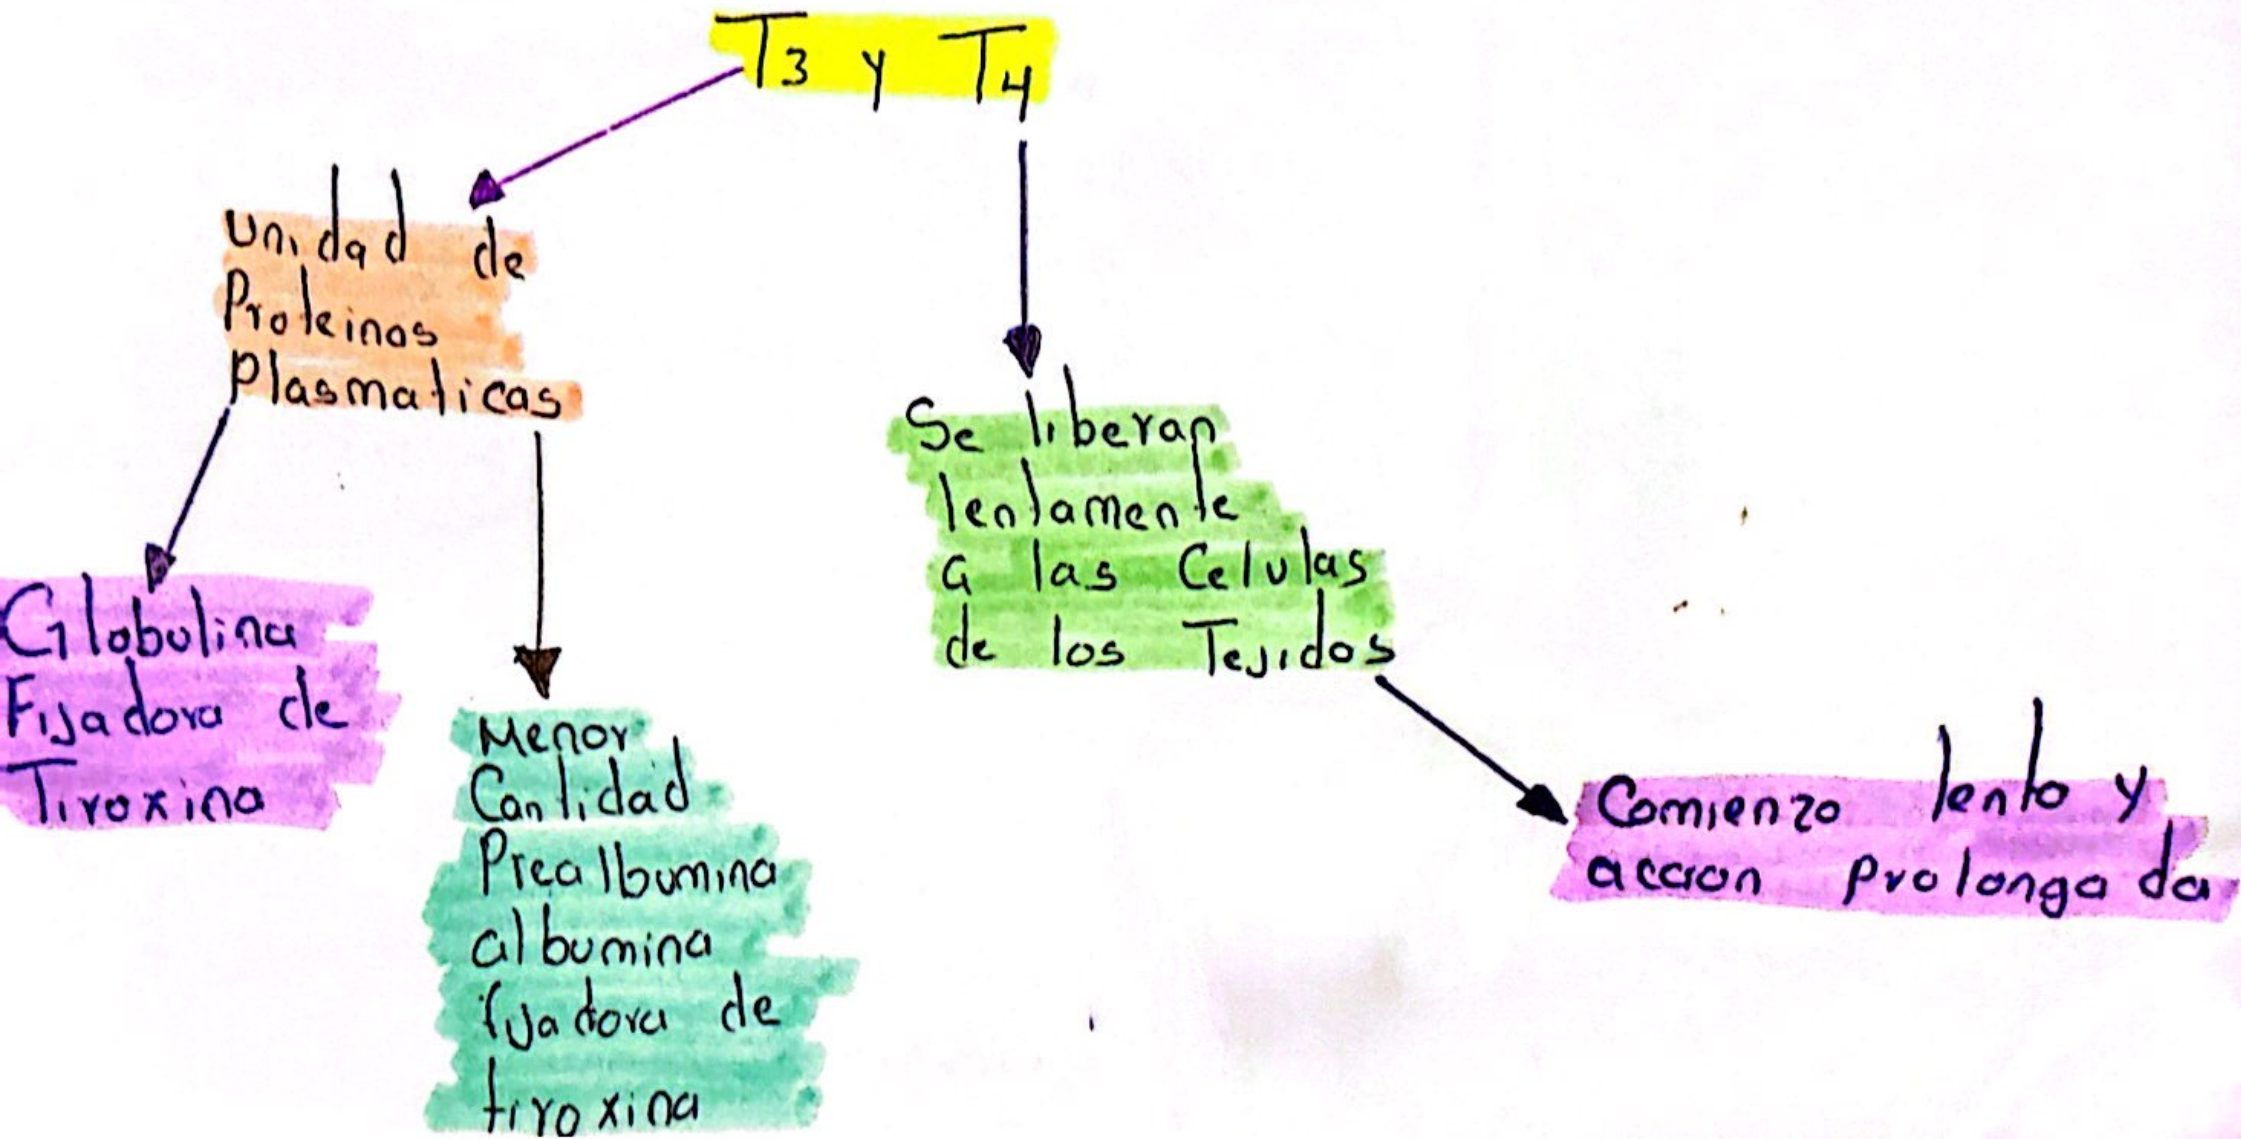 T3 y T4
Unidad de
Proteinas
Plasmaticas
Globulina
Fijadora de
Tiroxina
Menor
Cantidad
Prealbumina
albumina
fijadora de
tiroxina
Se liberan
lentamente
a las Celulas
de los Tejidos
Comienzo lento y
accion prolongada